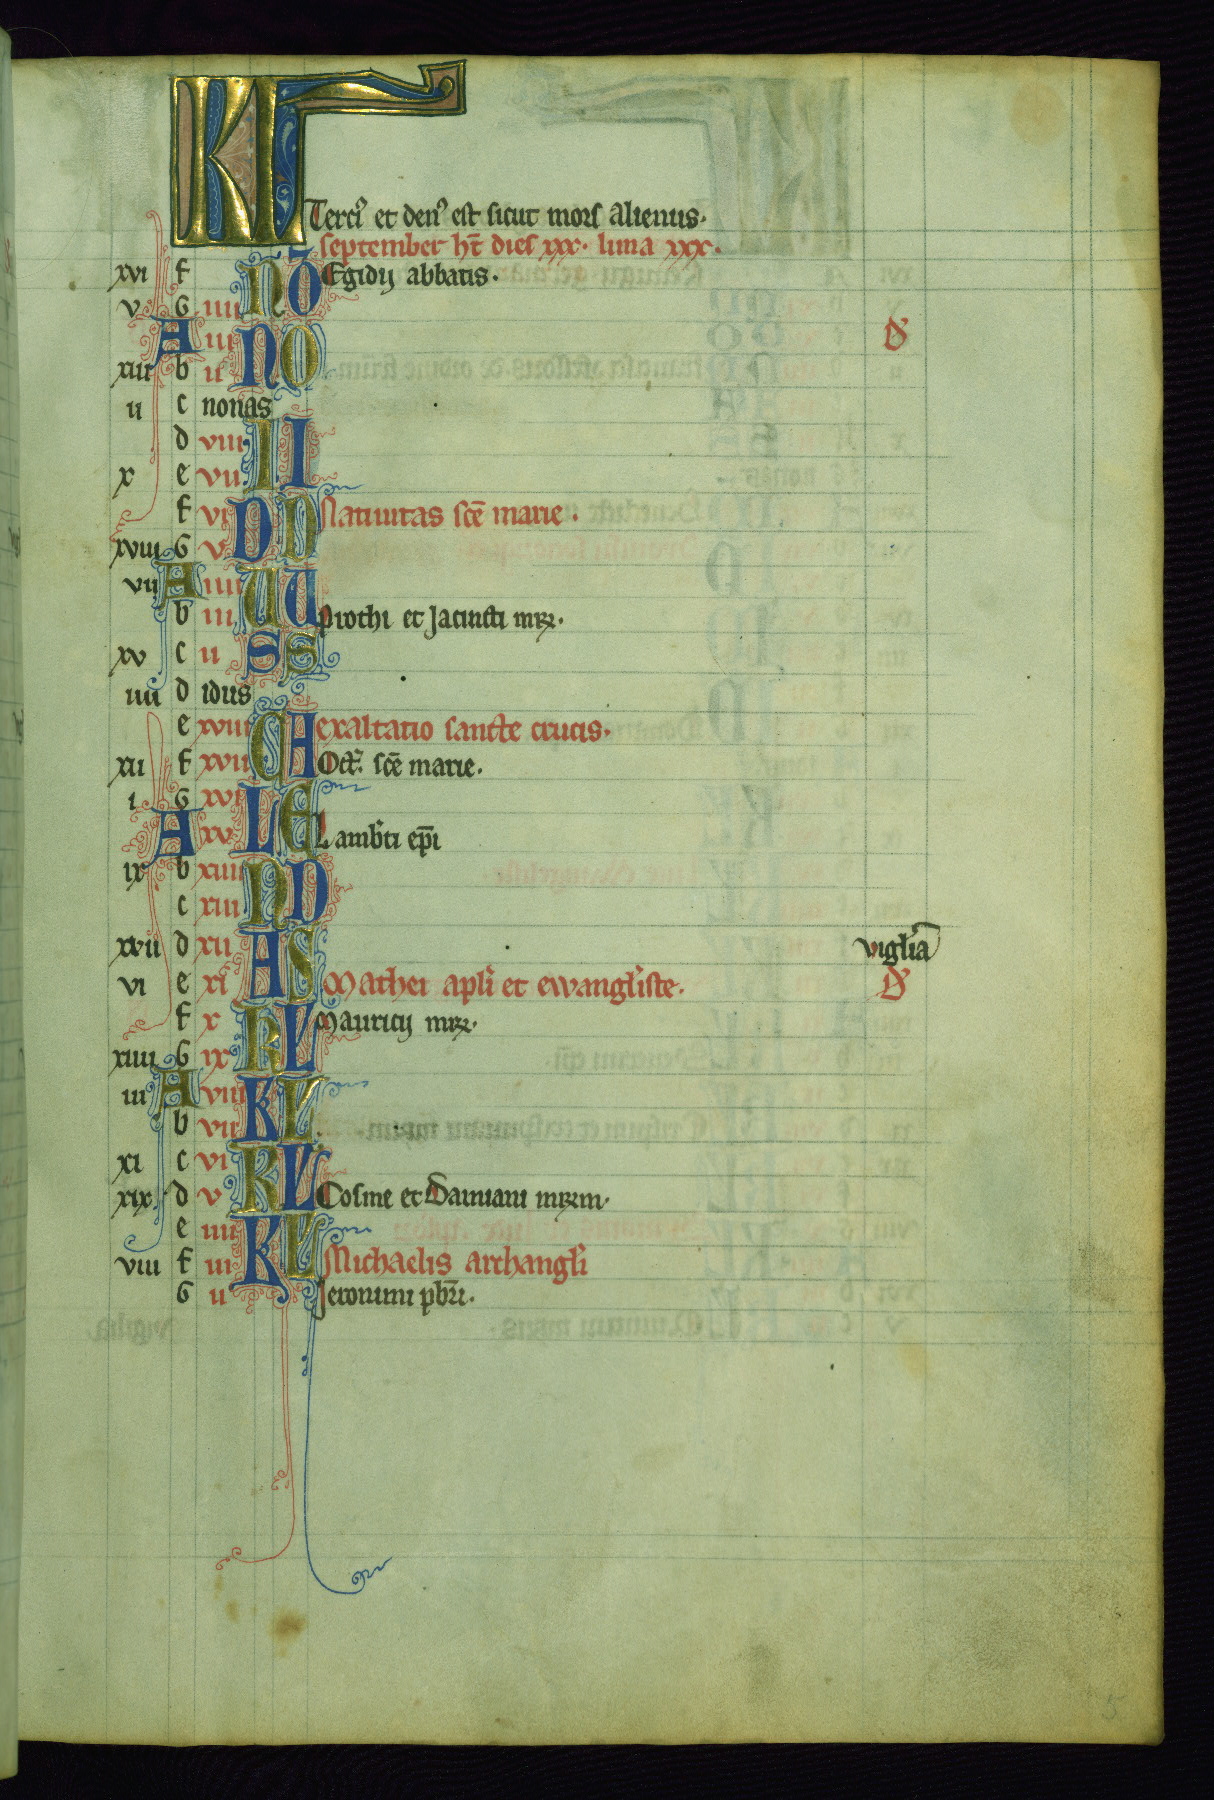 KL
Terciꝰ et denꝰ est sicut mors alienus.
september ht̄ dies xxx. luna xxx.
xvi f Egidij abbatis.
v G iiii N O
A iii D
xiii b ii N O
ii c nonas
d viii
x e vii I I
f vi Natiuitas sc̄e marie.
xviii G v D D
vii A iiii
b iii U U Prothi et Jacincti mr̄ꝝ.
xv c ii S S
iiii d idus
e xviii exaltatio sancte crucis.
xii f xvii C A Oct̄. sc̄e marie.
i G xvi
A xv L E Lamb̄ti ep̄i
ix b xiiii
c xiii N D
xvii d xii viglīa
vi e xi A S Mathei apl̄i et ewangl̄iste. D
f x Mauricij mr̄ꝝ.
xiiii G ix K L
iii A viii
b vii K L
xi c vi
xix d v K L Cosme et Damiani mr̄ꝝm.
e iiii
viii f iii K L Michaelis archangl̄i
G ii Jeronimi pb̄ri.
5